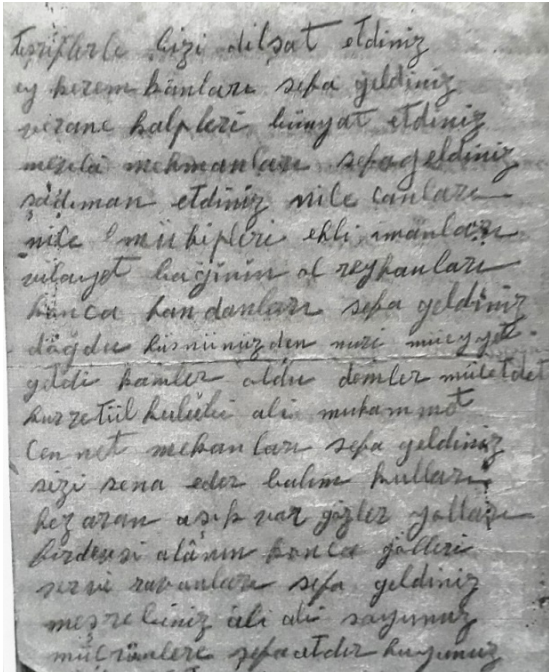 teşriflerle bizi dilşat etdiniz
ey kerem kânları sefa geldiniz
virane kalpleri bünyat etdiniz
mevlâ mehmanları sefa geldiniz
şâdıman etdiniz niçe canları
niçe muhipleri ehli imanları
vilayet bağının al reyhanları
konca handanları sefa geldiniz
doğdu hüsnünüzden nuri
geldi kamler oldu demler
kurretül ali muhammet
Cennet mekanları sefa geldiniz
sizi sena eder balım kulları
hezaran aşık var gözler yolları
firdevsi alânın konca gülleri
servi ravanları sefa geldiniz
meşrebiniz ali ali soyunuz
mücrimlere şefaatdır huyunuz